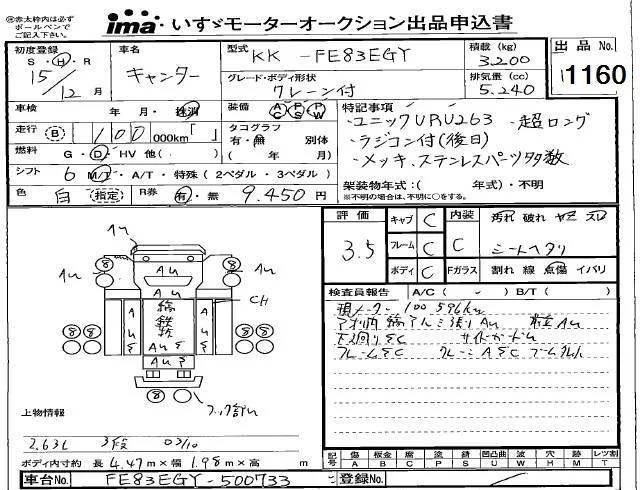 ※赤太枠内は必ず
ボールペンで
ご記入下さい。
ima いすゞモーターオークション出品申込書
初度登録 S・H・R 15/12月
車名 キャンター
型式 KK-FE83EGY
積載(kg) 3,200
出品No. 1160
グレード・ボディ形状 クレーン付
排気量(cc) 5.240
車検 年・月・抹消
装備 AC PS PW
特記事項
・ユニックURU263 ・超ロング
・ラジコン付(後日)
・メッキ、ステンレスパーツ多数
走行 B 100 000km「 」
タコグラフ 有・無 別体
( 年 月)
燃料 G・D・HV 他( )
シフト 6 M/T・A/T・特殊(2ペダル・3ペダル)
架装物年式:( 年式)・不明
※不明の場合は、不明に○をする。
色 白 (指定)
R券 有・無 9.450円
評価 3.5
キャブ C
フレーム C
ボディ C
内装 C
Fガラス
汚れ 破れ ヤケ スレ
シートヘタリ
割れ 線 点傷 イバリ
検査員報告 A/C( - ) B/T( )
現メーター 100596km
下回りSC サイドガードU
フレームSC クレーンASC
AU
CH
縞鉄板
フック部U
上物情報
2.63t 3段 03/10
ボディ内寸約 長 4.47m×幅 1.98m×高 m
記号 傷A 板金B 腐C 塗P 錆S 凹凸曲U 波W 穴H 跡M レツ割T
車台No. FE83EGY-500733
登録No.